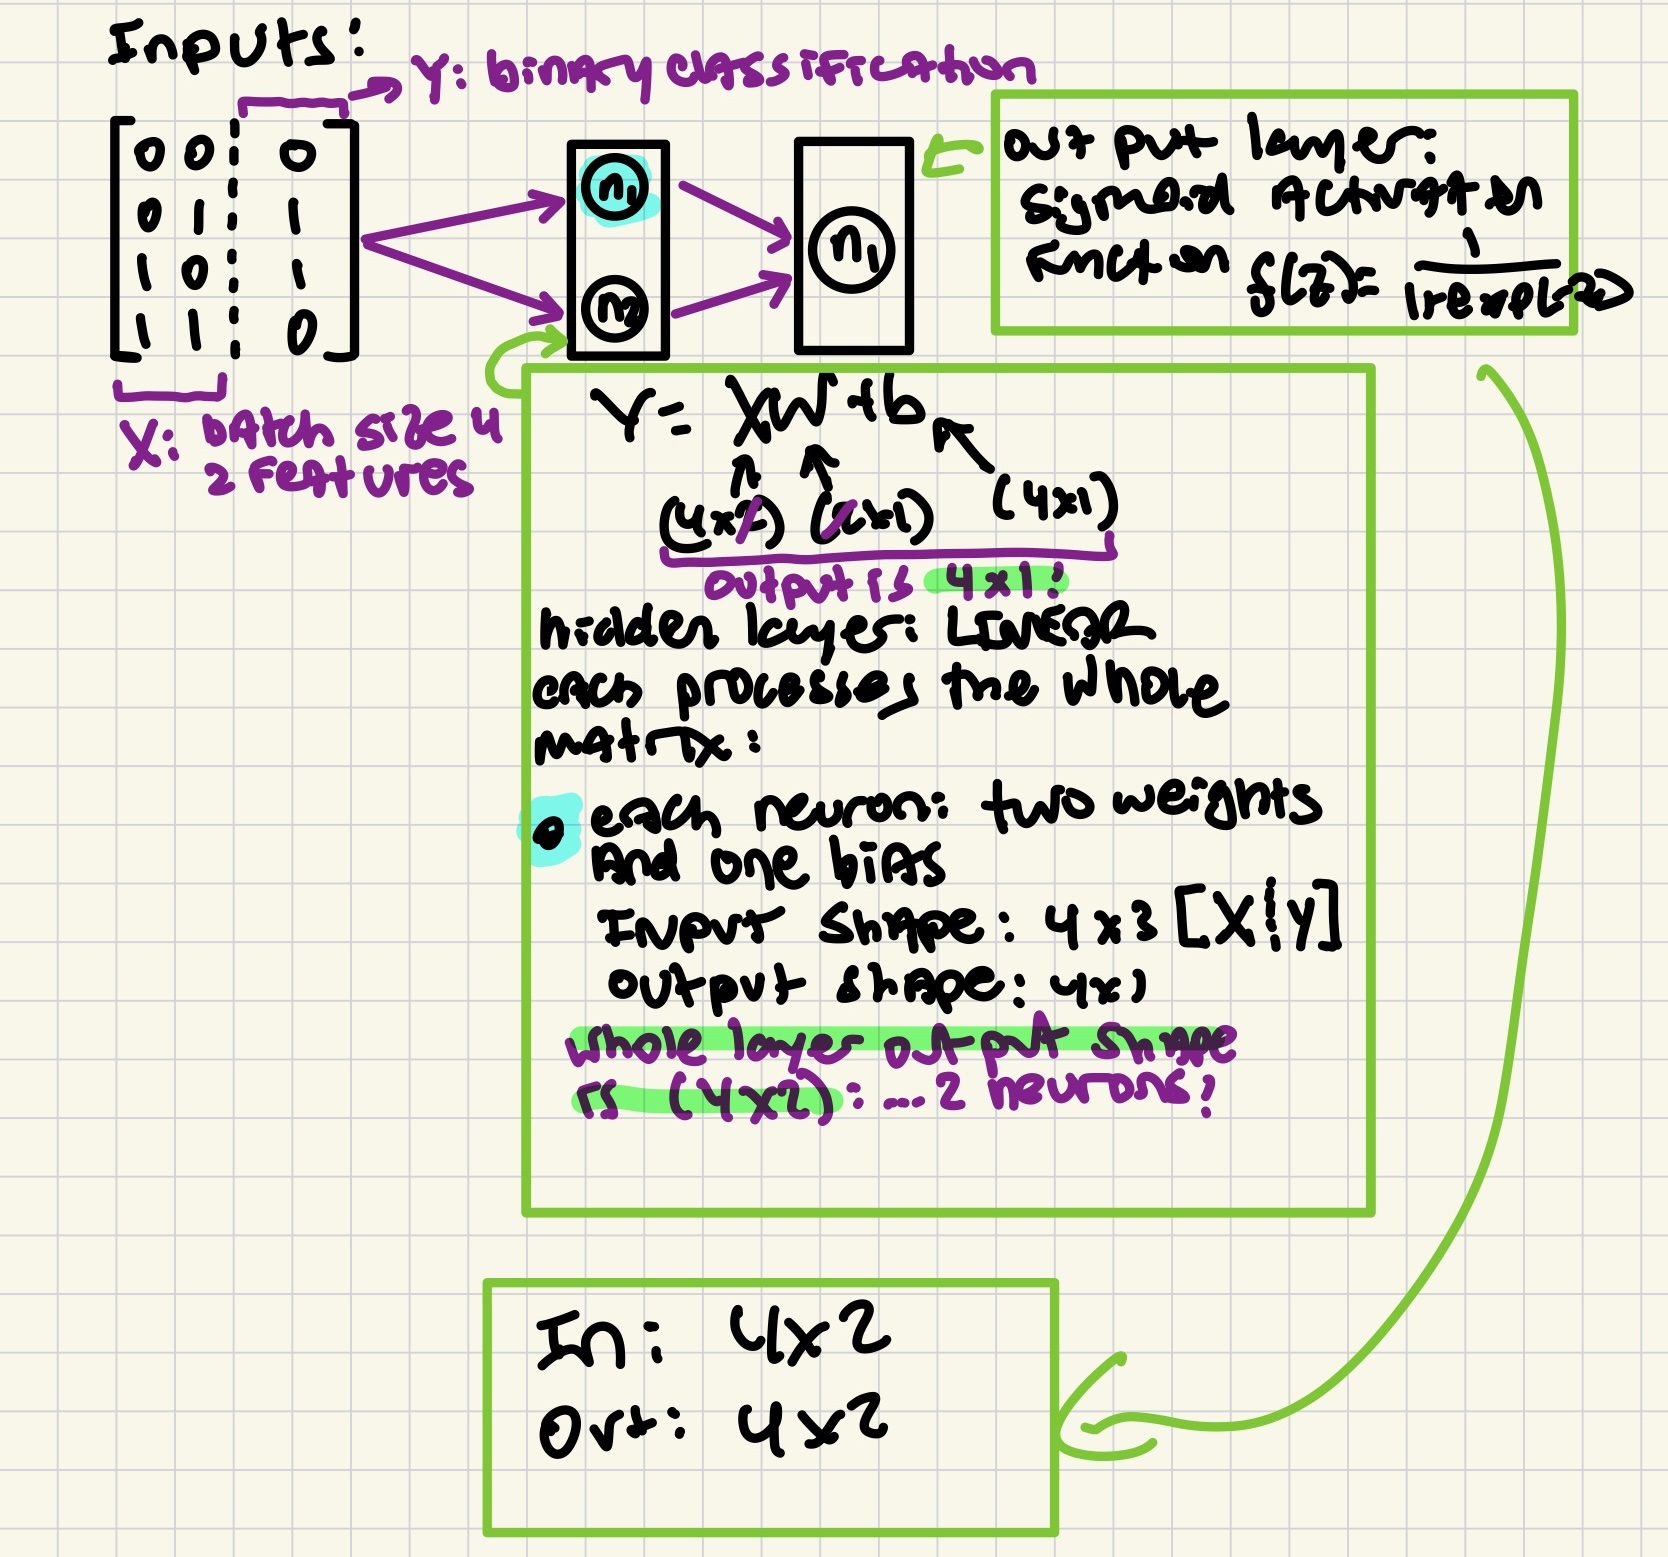 Inputs:
Y: binary classification
0 0 0
0 1 1
1 0 1
1 1 0
X: batch size 4
2 features
n1
n2
n1
output layer:
sigmoid activation
function f(z)= 1
1+exp(-z)
Y= XW+b
(4x2) (2x1) (4x1)
output is 4x1!
hidden layer: LINEAR
each processes the whole
matrix:
• each neuron: two weights
and one bias
Input shape: 4x3 [X¦Y]
output shape: 4x1
whole layer output shape
is (4x2): ... 2 neurons!
In: 4x2
Out: 4x2